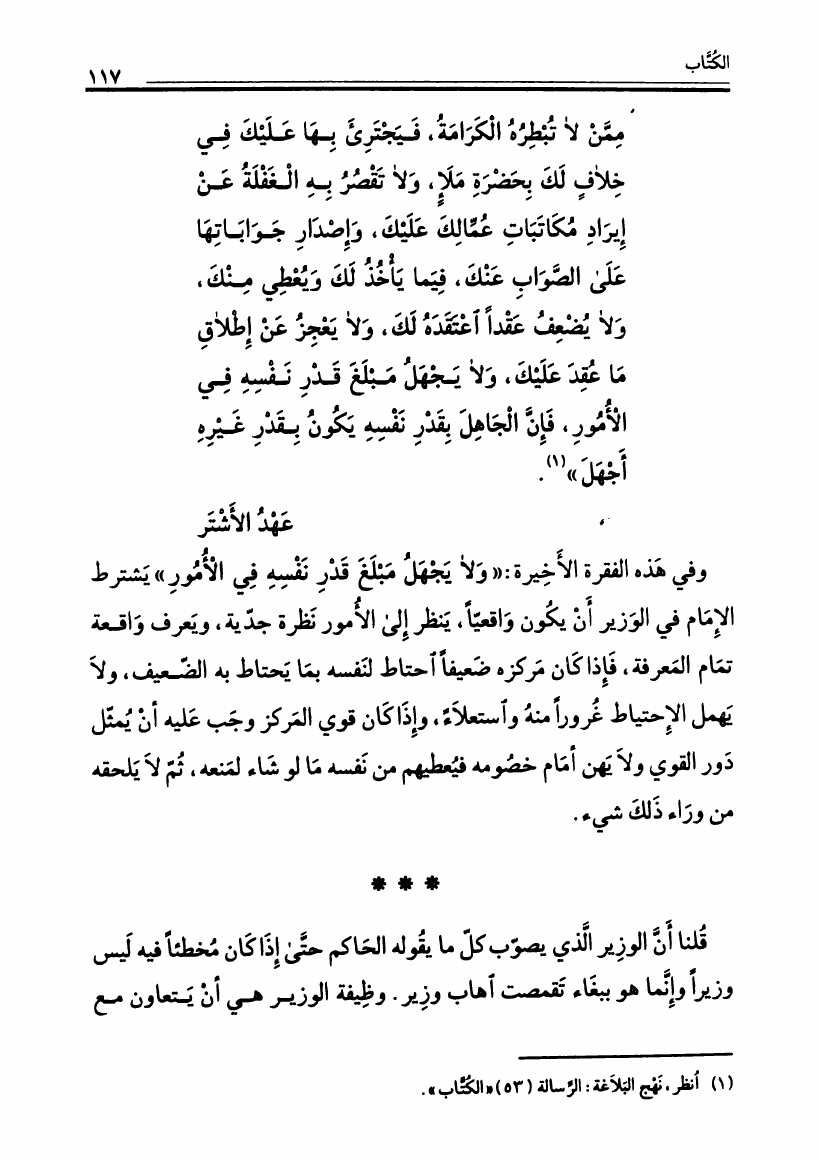 الكُتَّاب
١١٧
مِمَّنْ لاَ تُبْطِرُهُ الْكَرَامَةُ، فَيَجْتَرِئَ بِهَا عَلَيْكَ فِي
خِلاَفٍ لَكَ بِحَضْرَةِ مَلَإٍ، وَلاَ تَقْصُرُ بِهِ الْغَفْلَةُ عَنْ
إِيرَادِ مُكَاتَبَاتِ عُمَّالِكَ عَلَيْكَ، وَإِصْدَارِ جَوَابَاتِهَا
عَلَىٰ الصَّوَابِ عَنْكَ، فِيَما يَأْخُذُ لَكَ وَيُعْطِي مِنْكَ،
وَلاَ يُضْعِفُ عَقْداً ٱعْتَقَدَهُ لَكَ، وَلاَ يَعْجِزُ عَنْ إِطْلاَقِ
مَا عُقِدَ عَلَيْكَ، وَلاَ يَجْهَلُ مَبْلَغَ قَدْرِ نَفْسِهِ فِي
الْأُمُورِ، فَإِنَّ الْجَاهِلَ بِقَدْرِ نَفْسِهِ يَكُونُ بِقَدْرِ غَيْرِهِ
أَجْهَلَ»(١).
عَهْدُ الأَشْتَر
وفي هَذه الفقرة الأَخِيرة:«وَلاَ يَجْهَلُ مَبْلَغَ قَدْرِ نَفْسِهِ فِي الْأُمُورِ» يَشترط
الإِمَام في الوَزير أَنْ يكُون وَاقعيّاً، يَنظر إِلىٰ الأُمور نَظرة جدّية، ويَعرف وَاقعة
تمَام المَعرفة، فَإِذا كَان مَركزه ضَعيفاً ٱحتَاط لنَفسه بمَا يَحتاط به الضّعيف، ولاَ
يَهمل الإِحتياط غُروراً منهُ وٱستعلاَءً، وإِذَا كَان قوي المَركز وجَب عَليه أنْ يُمثّل
دَور القوي ولاَ يَهن أمَام خصُومه فيُعطيهم من نَفسه مَا لو شَاء لمَنعه، ثُمّ لاَ يَلحقه
من ورَاء ذَلكَ شيء.
* * *
قُلنا أَنَّ الوزِير الَّذي يصوّب كلّ ما يقُوله الحَاكم حتَّىٰ إِذَا كَان مُخطئاً فيه لَيس
وزيراً وإِنَّما هو ببغَاء تَقمصت ٱهاب وزِير. وظِيفة الوزيـر هـي أنْ يَـتعاون مـع
(١) ٱنظر، نَهْج البَلاَغة: الرِّسالة (٥٣) «الكُتَّاب».